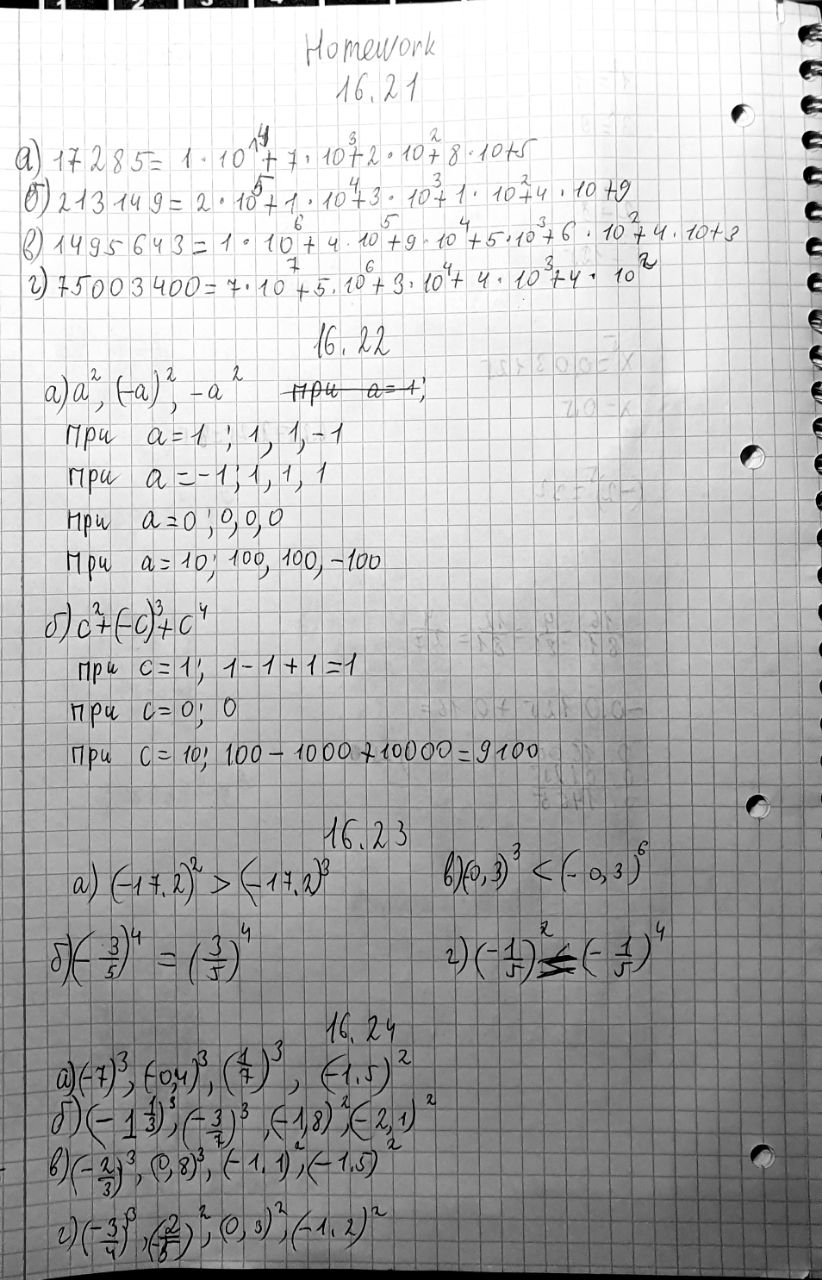 Homework
16.21
а) 17285 = 1 · 10⁴ + 7 · 10³ + 2 · 10² + 8 · 10 + 5
б) 213149 = 2 · 10⁵ + 1 · 10⁴ + 3 · 10³ + 1 · 10² + 4 · 10 + 9
в) 1495643 = 1 · 10⁶ + 4 · 10⁵ + 9 · 10⁴ + 5 · 10³ + 6 · 10² + 4 · 10 + 3
г) 75003400 = 7 · 10⁷ + 5 · 10⁶ + 3 · 10⁴ + 4 · 10³ + 4 · 10²
16.22
а) a², (-a)², -a² при a=1;
при a = 1; 1, 1, -1
при a = -1; 1, 1, 1
при a = 0; 0, 0, 0
при a = 10; 100, 100, -100
б) c² + (-c)³ + c⁴
при c = 1; 1 - 1 + 1 = 1
при c = 0; 0
при c = 10; 100 - 1000 + 10000 = 9100
16.23
а) (-17.2)² > (-17.2)³ в) (0,3)³ < (-0,3)⁶
б) (-3/5)⁴ = (3/5)⁴ г) (-1/5)² ≤ (-1/5)⁴
16.24
а) (-7)³, (-0,4)³, (1/7)³, (-1.5)²
б) (-1 1/3)³, (-3/7)³, (-1,8)², (-2,1)²
в) (-2/3)³, (0,8)³, (-1.1)², (-1.5)²
г) (-3/4)³, (-2/5)², (0,3)², (-1.2)²